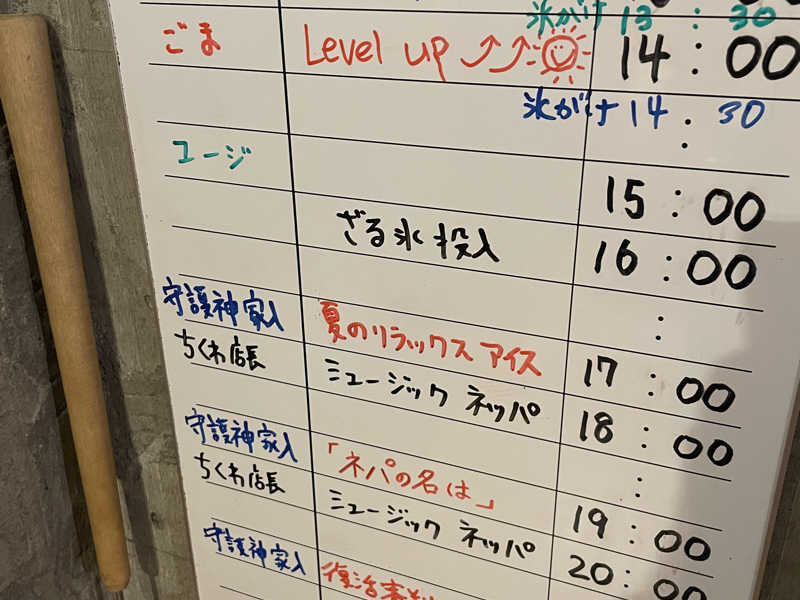 氷がけ 13:30
ごま Level up ⤴⤴ 14:00
氷がけ 14:30
:
ユージ 15:00
ざる氷投入 16:00
:
守護神家入 夏のリラックスアイス 17:00
ちくわ店長 ミュージック ネッパ 18:00
:
守護神家入 「ネパの名は」 19:00
ちくわ店長 ミュージック ネッパ 20:00
守護神家入 復活